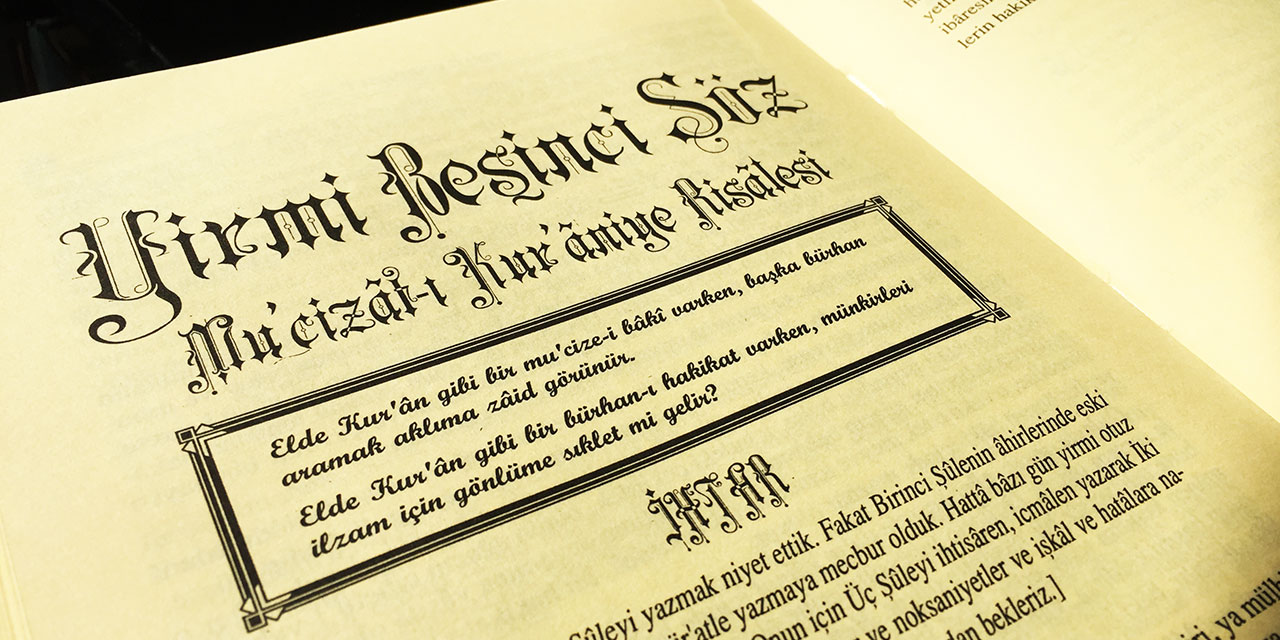 Yirmi Beşinci Söz
Mu'cizât-ı Kur'âniye Risâlesi
Elde Kur'ân gibi bir mu'cize-i bâkî varken, başka bürhan
aramak aklıma zâid görünür.
Elde Kur'ân gibi bir bürhan-ı hakikat varken, münkirleri
ilzam için gönlüme sıklet mi gelir?
İHTAR
Şûleyi yazmak niyet ettik. Fakat Birinci Şûlenin âhirlerinde eski
yazmaya mecbur olduk. Hattâ bâzı gün yirmi otuz
Onun için Üç Şûleyi ihtisâren, icmâlen yazarak İki
ve noksaniyetler ve işkâl ve hatâlara na-
bekleriz.]
ya
lerin